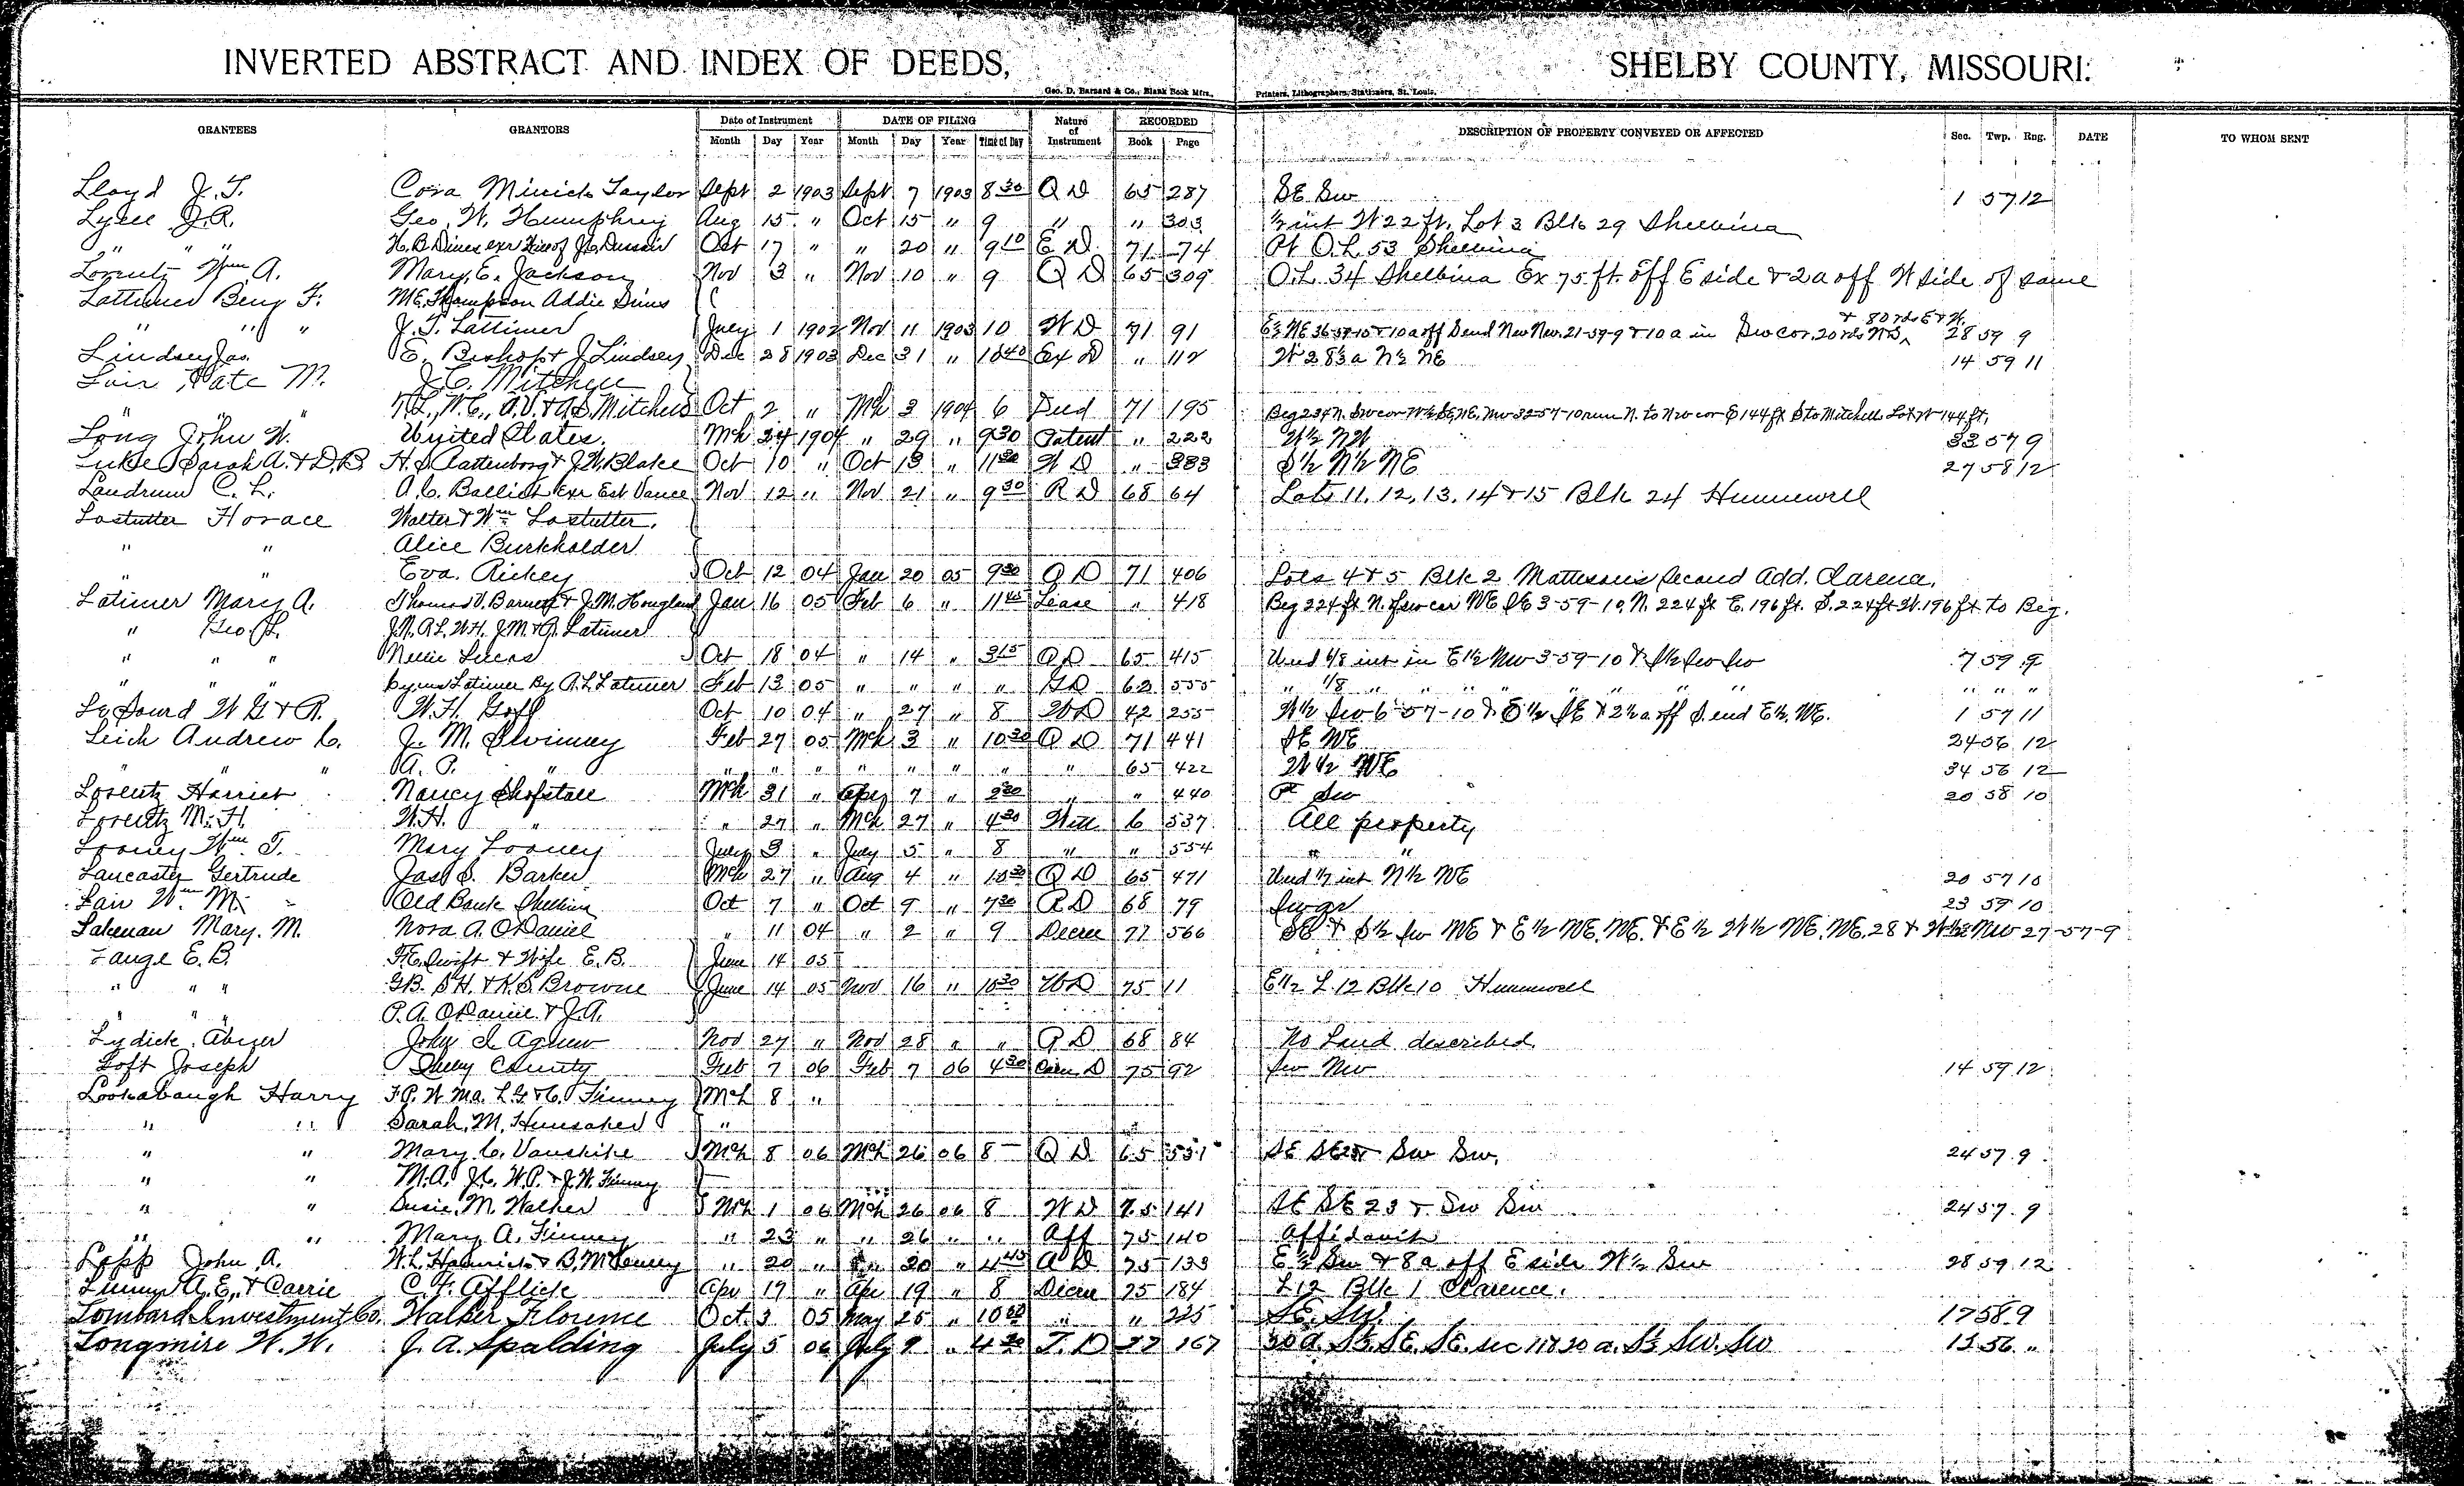 INVERTED ABSTRACT AND INDEX OF DEEDS, SHELBY COUNTY, MISSOURI.
Geo. D. Barnard & Co., Blank Book Mfrs., Printers, Lithographers, Stationers, St. Louis.
GRANTEES GRANTORS Date of Instrument DATE OF FILING Nature of Instrument RECORDED DESCRIPTION OF PROPERTY CONVEYED OR AFFECTED Sec. Twp. Rng. DATE TO WHOM SENT
Month Day Year Month Day Year Time of Day Book Page
Lloyd J. T. Cora Minick Taylor Sept 2 1903 Sept 7 1903 8 30 Q D 65 287 SE Sw 1 57 12
Lyell J. R. Geo. W. Humphrey Aug 15 " Oct 15 " 9 " " 303 ½ int W 22 ft. Lot 3 Blk 29 Shelbina
" " " Oct 17 " " 20 " 9 10 E D 71 74 Pt O.L. 53 Shelbina
Lorentz Wm A. Mary E. Jackson Nov 3 " Nov 10 " 9 Q D 65 309 O.L. 34 Shelbina Ex 75 ft. off E side & 2a off W side of same
Lattimer Benj F. M.E. Thompson Addie Sims
" " " J. T. Lattimer July 1 1902 Nov 11 1903 10 W D 71 91 E½ NE 36-59-10 & 10 a off S end Nw Nw. 21-59-9 & 10 a in Sw cor. 20 rds NS & 80 rds E & W. 28 59 9
Lindsey Jas. E. Bishop & J Lindsey Dec 28 1903 Dec 31 " 10 40 Ex D " 112 W 28½ a N½ NE 14 59 11
Lair Kate M. J. C. Mitchell
" " " T.L., W.C., A.V. & A.S. Mitchell Oct 2 " Mch 3 1904 6 Deed 71 195
Long John W. United States. Mch 24 1904 " 29 " 9 30 Patent " 222 W½ NW 33 57 9
Luke Sarah A. & D.B. H. S. Rattenborg & J. W. Blake Oct 10 " Oct 13 " 11 30 W D " 383 S½ N½ NE 27 58 12
Landrum C. L. A. C. Exr Est Vance Nov 12 " Nov 21 " 9 30 R D 68 64 Lots 11, 12, 13, 14 & 15 Blk 24 Hunnewell
Lostutter Horace Walter & Wm Lostutter.
" " Alice Burkholder
" " Eva. Rickey Oct 12 04 Jan 20 05 9 30 Q D 71 406 Lots 4 & 5 Blk 2 Second Add. Clarence.
Latimer Mary A. Thomas V. Barnett & J. M. Hougland Jan 16 05 Feb 6 " 11 45 Lease " 418 Beg 224 ft N. Sw cor NE SE 3-59-10, N. 224 ft E. 196 ft. S. 224 ft W. 196 ft to Beg.
" Geo. L. J.N. A.L. W.H. J.M. & Latimer
" " " Nellie Lucas Oct 18 04 " 14 " 3 15 Q D 65 415 Und 1/8 int in E½ Nw 3-59-10 & S½ Sw Sw 7 59 9
" " " Cyrus Latimer By A. L. Latimer Feb 13 05 " " " " 62 555 " 1/8 " " " " " " " "
LeSourd W G & R. W. H. Goff Oct 10 04 " 27 " 8 W D 42 255 W½ Sw 6-57-10 & E½ SE & 2½ a off S. end E½ NE. 1 57 11
Leich Andrew C. J. M. Swinney Feb 27 05 Mch 3 " 10 30 Q D 71 441 SE NE 24 56 12
" " " A. P. " " " " " " " " " 65 422 W½ NE 34 56 12
Lorentz Harriet Nancy Shofstall Mch 31 " Apr 7 " 9 30 " " 440 Pt Sw 20 58 10
Lorentz M. H. W. H. " " 27 " Mch 27 " 4 30 Will 6 537 All property
Looney Wm T. Mary Looney July 3 " July 5 " 8 " " 554 " "
Lancaster Gertrude Jas S. Barker Mch 27 " Aug 4 " 10 30 Q D 65 471 Und 1/7 int N½ NE 20 57 10
Lair Wm M. Old Bank Shelbina Oct 7 " Oct 9 " 7 30 R D 68 79 Sw qr 23 59 10
Lakenan Mary. M. Nora A. O'Daniel " 11 04 " 2 " 9 Decree 71 566 SE & S½ Sw NE & E½ NE. NE. & E½ W½ NE. NE. 28 & W½ Nw 27-57-9
Lange E. B. F.C. Swift & Wife E.B. June 14 05
" " " G.B. S.H. & K.S. Browne June 14 05 Nov 16 " 10 30 W D 75 11 E½ L 12 Blk 10 Hunnewell
" " P.A. O'Daniel & J.A.
Lydick Abyer John I. Agnew Nov 27 " Nov 28 " " R D 68 84 No Land described.
Loft Joseph Shelby County Feb 7 06 Feb 7 06 4 30 75 92 Sw Nw 14 59 12
Lookabaugh Harry F.P. W. Ma. L.G. & C. Finney Mch 8 "
" " Sarah M. Hunsaker "
" " Mary C. Vanskike Mch 8 06 Mch 26 06 8 — Q D 65 551 SE SE 23 & Sw Sw. 24 57 9
" " M.A. J.C. W.P. & J.W. Finney
" " Susie M. Walker Mch 1 06 Mch 26 06 8 W D 75 141 SE SE 23 & Sw Sw 24 57 9
" " Mary A. Finney " 23 " " 26 " " Aff 75 140 Affidavit
Lapp John A. W. L. Hamrick & B. McCully " 20 " " 20 " 4 45 A D 75 133 E½ Sw & 8 a off E side W½ Sw 28 59 12
A. E. & Carrie C. F. Afflick Apr 17 " Apr 19 " 8 Decree 75 184 L 12 Blk 1 Clarence.
Lombard Investment Co. Walker Florence Oct. 3 05 May 25 " 10 " " 225 SE. SW. 17 58 9
Longmire W. W. J. A. Spalding July 5 06 July 9 " 4 30 T. D 77 167 30 a. S½ SE. SE. sec 11 & 20 a. S½ Sw. Sw 12 56 "